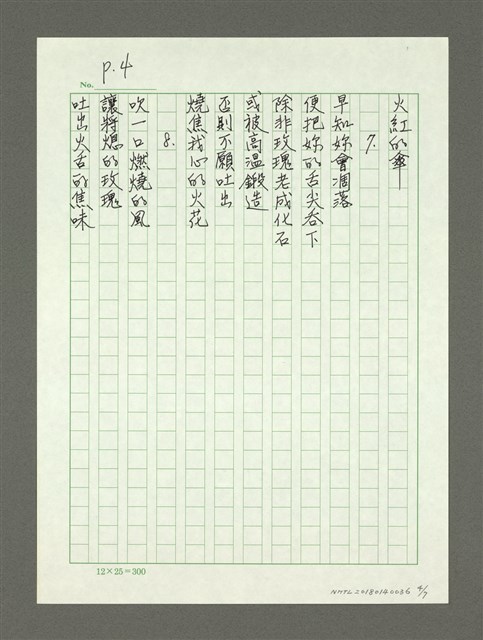 p.4
No.
火紅的傘
7.
早知妳會凋落
便把妳的舌尖吞下
除非玫瑰老成化石
或被高溫鍛造
否則不願吐出
燒焦我心的火花
8.
吹一口燃燒的風
讓將熄的玫瑰
吐出火舌的焦味
12×25=300
NMTL20180140086 4/7